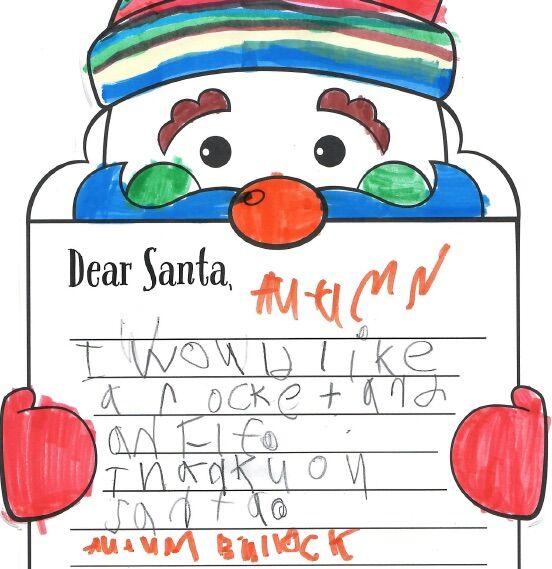 Dear Santa, AUtUMN
I Would like
a rocket and
an Elfo
Thankyou
santao
AUtUM BUllOCK